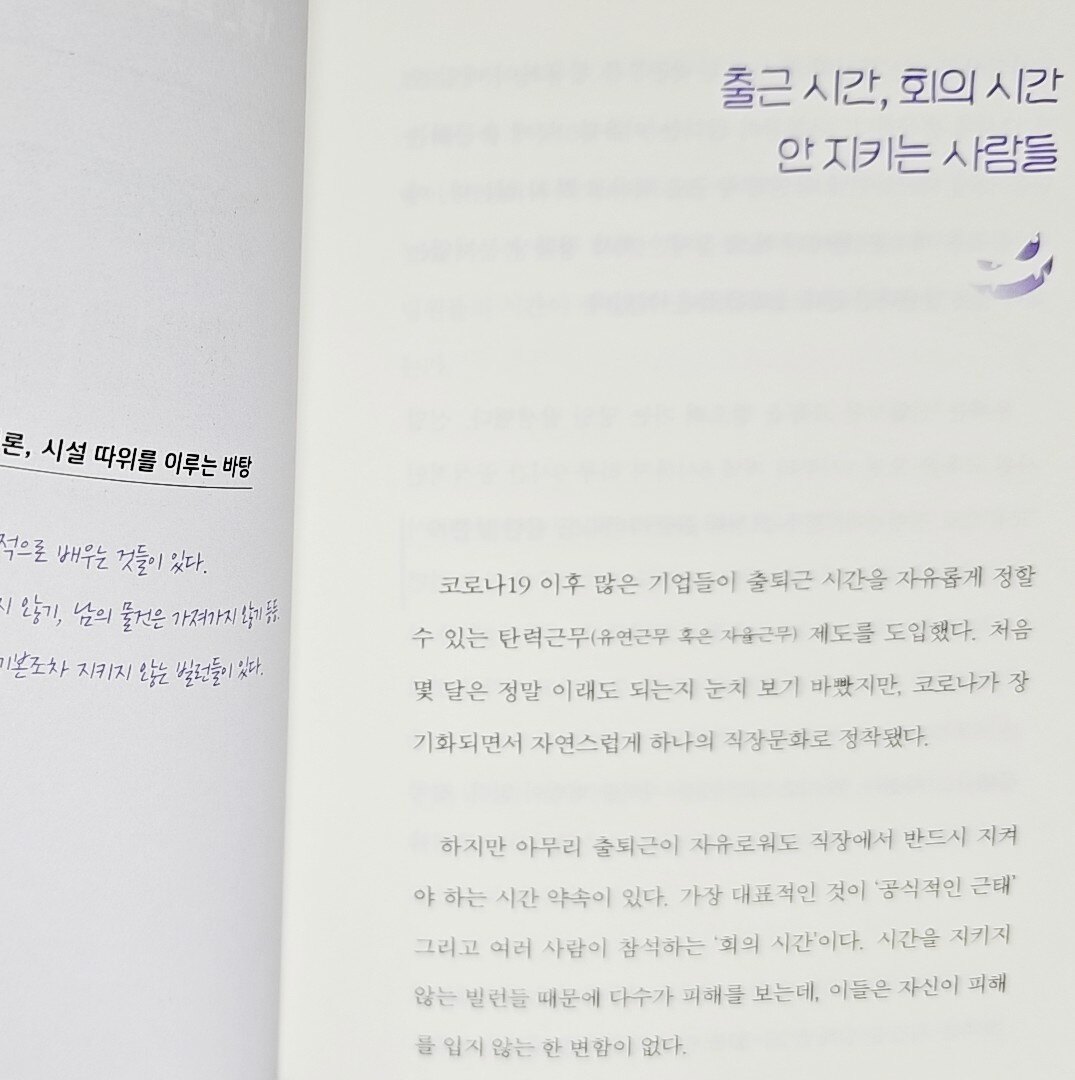 론, 시설 따위를 이루는 바탕
적으로 배우는 것들이 있다.
지 않기, 남의 물건은 가져가지 않기 등등.
기본조차 지키지 않는 빌런들이 있다.
출근 시간, 회의 시간
안 지키는 사람들
코로나19 이후 많은 기업들이 출퇴근 시간을 자유롭게 정할
수 있는 탄력근무(유연근무 혹은 자율근무) 제도를 도입했다. 처음
몇 달은 정말 이래도 되는지 눈치 보기 바빴지만, 코로나가 장
기화되면서 자연스럽게 하나의 직장문화로 정착됐다.
하지만 아무리 출퇴근이 자유로워도 직장에서 반드시 지켜
야 하는 시간 약속이 있다. 가장 대표적인 것이 ‘공식적인 근태’
그리고 여러 사람이 참석하는 ‘회의 시간’이다. 시간을 지키지
않는 빌런들 때문에 다수가 피해를 보는데, 이들은 자신이 피해
를 입지 않는 한 변함이 없다.